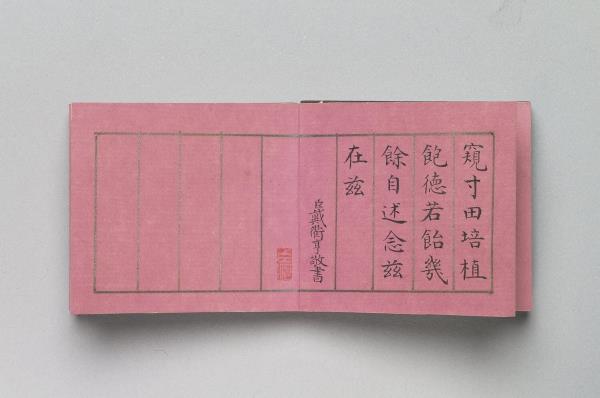 窺寸田培植
飽德若飴幾
餘自述念茲
在茲
臣戴衢亨敬書